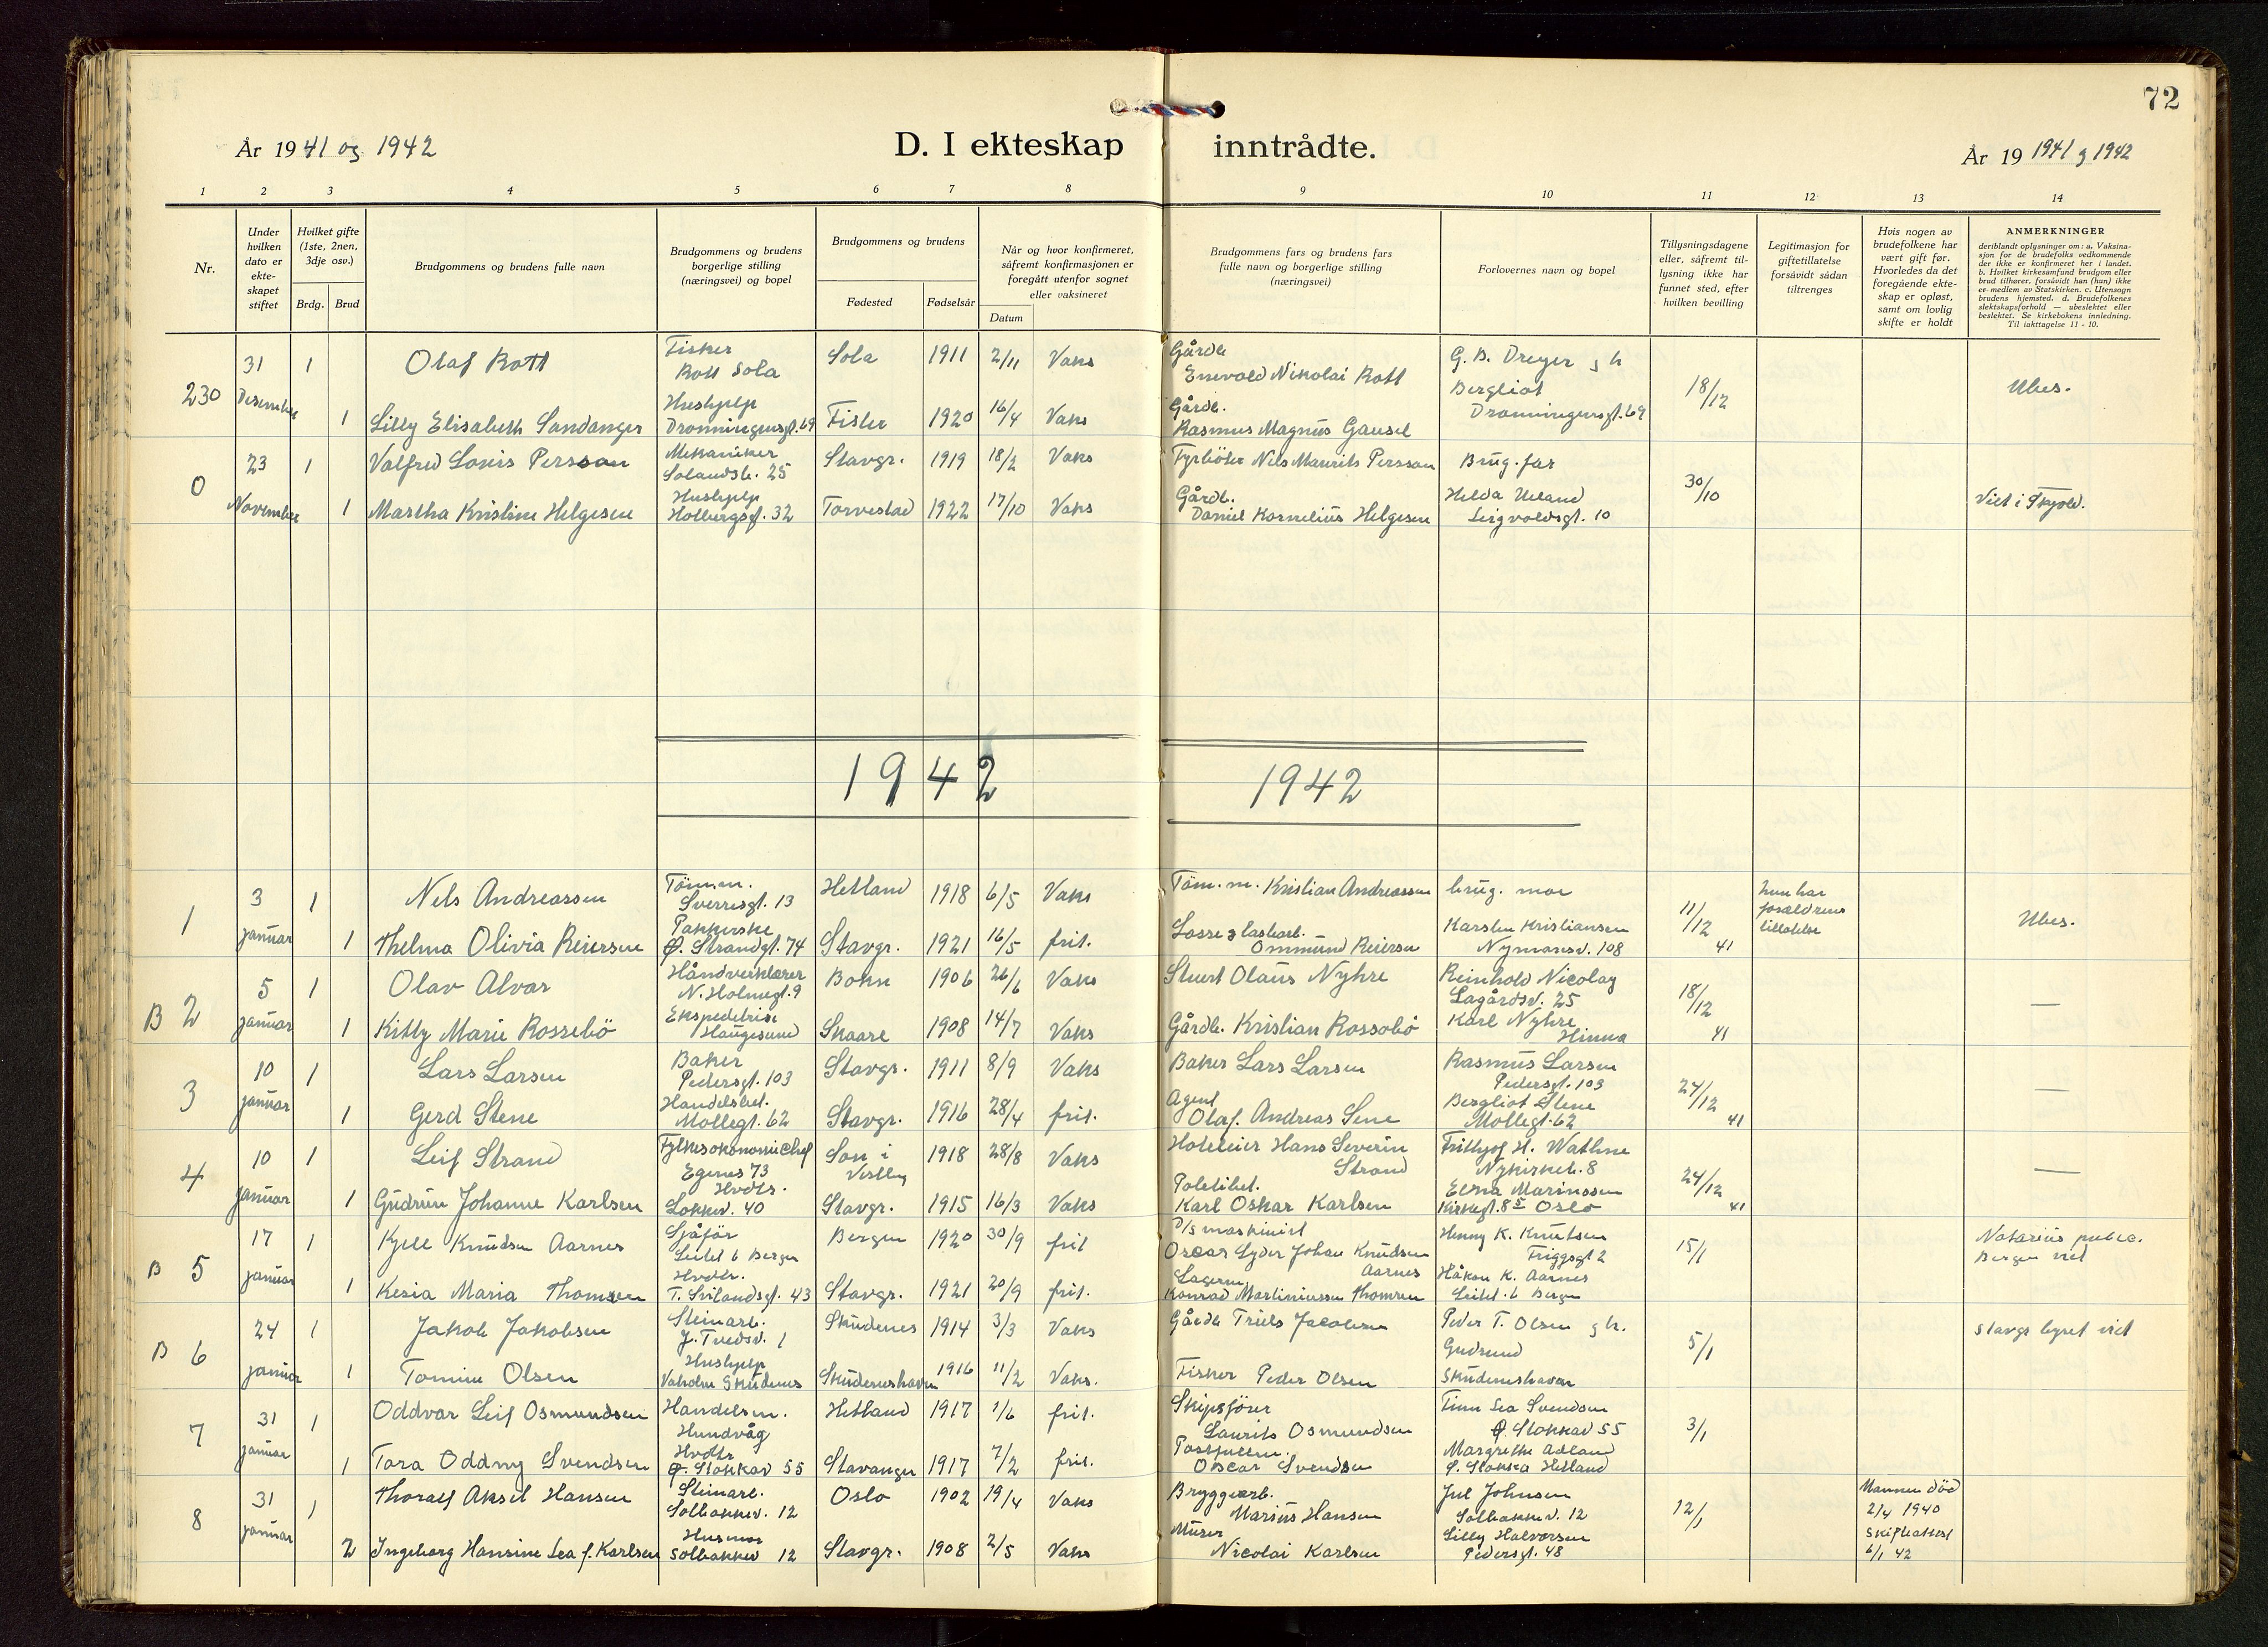 72
År 1941 og 1942
D. I ekteskap inntrådte.
År 19 1941 g 1942
1 2 3 4 5 6 7 8 9 10 11 12 13 14
Nr.
Under
hvilken
dato er
ekte-
skapet
stiftet
Hvilket gifte
(1ste, 2nen,
3dje osv.)
Brdg. Brud
Brudgommens og brudens fulle navn
Brudgommens og brudens
borgerlige stilling
(næringsvei) og bopel
Brudgommens og brudens
Fødested Fødselsår
Når og hvor konfirmeret,
såfremt konfirmasjonen er
foregått utenfor sognet
eller vaksineret
Datum
Brudgommens fars og brudens fars
fulle navn og borgerlige stilling
(næringsvei)
Forlovernes navn og bopel
Tillysningsdagene
eller, såfremt til-
lysning ikke har
funnet sted, efter
hvilken bevilling
Legitimasjon for
giftetillatelse
forsåvidt sådan
tiltrenges
Hvis nogen av
brudefolkene har
vært gift før.
Hvorledes da det
foregående ekte-
skap er opløst,
samt om lovlig
skifte er holdt
ANMERKNINGER
deriblandt oplysninger om: a. Vaksina-
sjon for de brudefolks vedkommende
der ikke er konfirmeret her i landet.
b. Hvilket kirkesamfund brudgom eller
brud tilhører, forsåvidt han (hun) ikke
er medlem av Statskirken. c. Utensogn
brudens hjemsted. d. Brudefolkenes
slektskapsforhold — ubeslektet eller
beslektet. Se kirkebokens innledning.
Til iakttagelse 11 - 10.
230
31 Desember
1 Olaf Rott
Fisker
Rott Sola
Sola 1911 2/11 Vaks
Gårdb.
Enevald Nikolai Rott
G. B. Dreyer g h
Bergliot
Dronningensgt. 69
18/12
Ubes.
1 Lilly Elisabeth Sandanger
Hushjelp
Dronningensgt. 69
Fister 1920 16/4 Vaks
Gårdb.
Rasmus Magnus Gausel
0
23 November
1 Valfred Louis Persson
Mekaniker
Solandsb. 25
Stavgr. 1919 18/2 Vaks
Fyrböter Nels Maurits Persson
Brug. far
30/10
Viet i Skjold.
1 Martha Kristine Helgesen
Hushjelp
Holbergsgt. 32
Torvestad 1922 17/10 Vaks
Gårdb.
Daniel Kornelius Helgesen
Helda Ueland
Seigvoldsgt. 10
1942 1942
1
3 januar
1 Nels Andreassen
Tömm.
Sverresgt. 13
Hetland 1918 6/5 Vaks
Töm. m. Kristian Andreassen
brug. mor
11/12 41
hun har
foreldrens
tillatelse
Ubes.
1 Thelma Olivia Reiersen
Pakkerske
Ø. Strandgt. 74
Stavgr. 1921 16/5 frit.
Losse g lastearb.
Ommund Reiersen
Karsten Kristiansen
Nymansv. 108
B 2
5 januar
1 Olav Alvar
Håndverklærer
N. Holmegt. 9
Bokn 1906 26/6 Vaks
Stuert Olaus Nyhre
Reinhold Nicolay
Lagårdsv. 25
18/12 41
—
1 Kitty Marie Rossebö
Ekspeditrise
Haugesund
Skaare 1908 14/7 Vaks
Gårdb. Kristian Rossebö
Karl Nyhre
Hinna
3
10 januar
1 Lars Larsen
Baker
Pedersgt. 103
Stavgr. 1911 8/9 Vaks
Baker Lars Larsen
Rasmus Larsen
Pedersgt. 103
27/12 41
—
1 Gerd Stene
Handelsbet.
Møllegt. 62
Stavgr. 1916 28/4 frit.
Agent
Olaf. Andreas Sene
Bergliot Stene
Møllegt. 62
4
10 januar
1 Leif Strand
Fylkesøkonomichef
Egenes 73
Son i
Vestby
1918 28/8 Vaks
Hoteleier Hans Severin
Strand
Frithjof H. Wathne
Nykirkeb. 8
24/12 41
—
1 Gudrun Johanne Karlsen
Hvdtr.
Lokkev. 40
Stavgr. 1915 16/3 Vaks
Politibet.
Karl Oskar Karlsen
Edna Marinussen
Kirkegt. 8 5 Oslo
B 5
17 januar
1 Kjell Knudsen Aarnes
Sjåför
Leitet 6 Bergen
Bergen 1920 30/9 frit
D/s maskinist
Oscar Lyder Johan Knudsen
Aarnes
Henny K. Knutsen
Friggsgt 2
15/1
Notarius public.
Bergen viet
1 Kesia Maria Thomsen
Hvdtr.
T. Svilandsgt. 43
Stavgr. 1921 20/9 frit.
Lagerm.
Konrad Martiniussen Thomsen
Håkon K. Aarnes
Leitet. 6 Bergen
B 6
24 januar
1 Jakob Jakobsen
Steinarb.
J. Tvedtv. 1
Skudenes 1914 3/3 Vaks
Gårdb Truls Jacobsen
Peder T. Olsen g h.
Gudrund
Skudeneshavn
5/1
Stavgr byret viet
1 Tomine Olsen
Hushjelp
Vaholm Skudenes
Skudeneshavn 1916 11/2 Vaks.
Fisker Peder Olsen
7
31 januar
1 Oddvar Leif Osmundsen
Handelsm.
Hundvåg
Hetland 1917 1/6 frit.
Skipsförer
Laurits Osmundsen
Finn Sea Svendsen
Ø. Stokkav 55
3/1
1 Tora Oddny Svendsen
Hvdtr
Ø. Stokkav 55
Stavanger 1917 7/2 frit.
Postfullm.
Oscar Svendsen
Margrethe Adland
Ø. Stokka Hetland
8
31 januar
1 Thoralf Aksel Hansen
Steinarb.
Solbakkev. 12
Oslo 1902 19/4 Vaks
Bryggearb.
Marius Hansen
Juel Johnsen
Solbakkev. 12
12/1
Mannen död
2/4 1940
Skifteattest
6/1 42
2 Ingeborg Hansine Sea f. Karlsen
Husmor
Solbakkev 12
Stavgr. 1908 2/5 Vaks
Murer
Nicolai Karlsen
Lilly Halvorsen
Pedersgt. 48